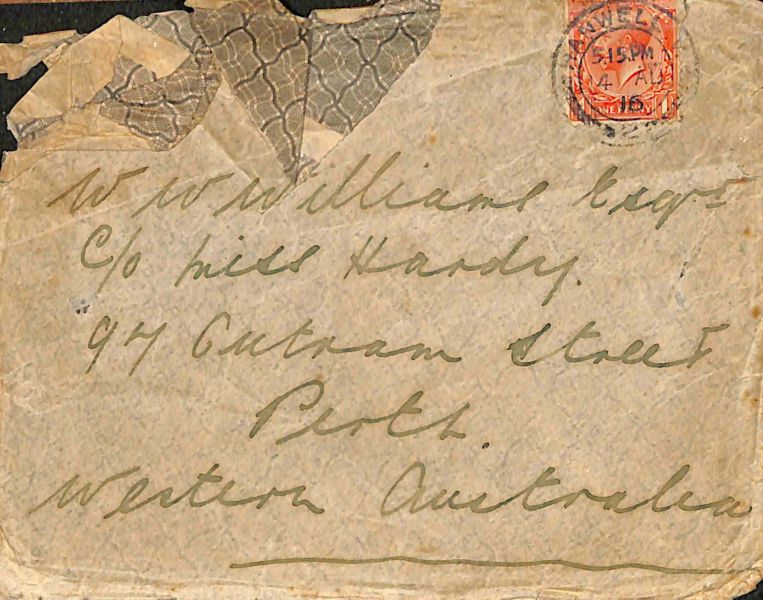 HANWELL
5.15.PM
4 AU
16
ONE PENNY
W W Williams Esqre
C/o Miss Hardy.
97 Outram Street
Perth.
Western Australia